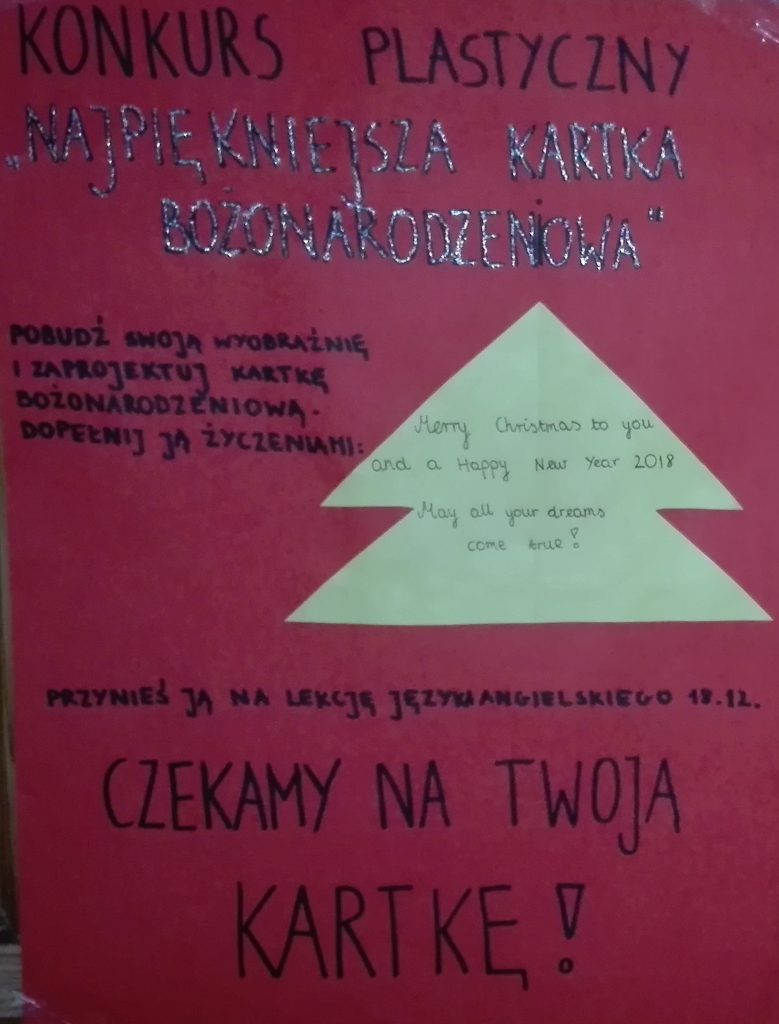 KONKURS PLASTYCZNY
„NAJPIĘKNIEJSZA KARTKA
BOŻONARODZENIOWA"
POBUDŹ SWOJĄ WYOBRAŹNIĘ
I ZAPROJEKTUJ KARTKĘ
BOŻONARODZENIOWĄ.
DOPEŁNIJ JĄ ŻYCZENIAMI:
Merry Christmas to you
and a Happy New Year 2018
May all your dreams
come true!
PRZYNIEŚ JĄ NA LEKCJĘ JĘZYKA ANGIELSKIEGO 18.12.
CZEKAMY NA TWOJĄ
KARTKĘ!